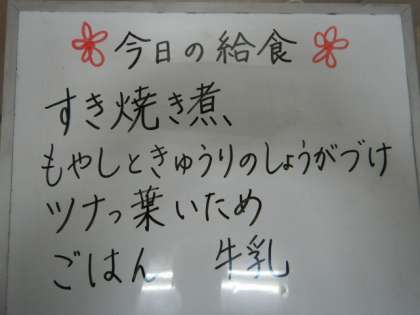 今日の給食
すき焼き煮
もやしときゅうりのしょうがづけ
ツナっ葉いため
ごはん 牛乳